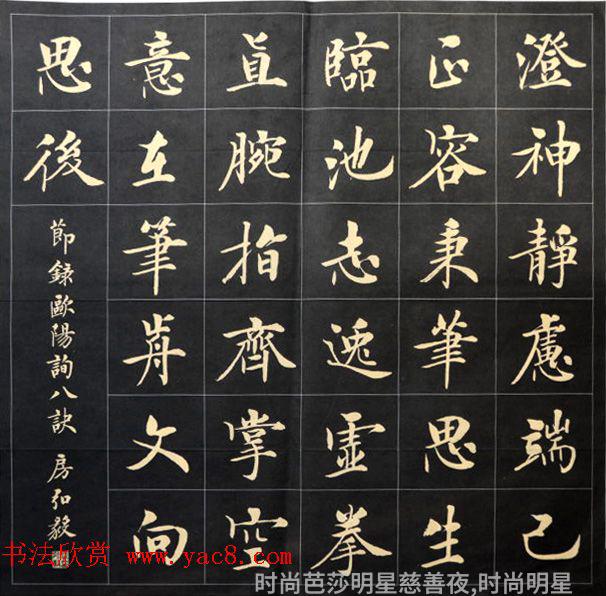 澄神靜慮端己
正容秉筆思生
臨池志逸虛拳
直腕指齊掌空
意在筆歬文向
思後
節録歐陽詢八訣 房弘毅
书法欣赏 www.yac8.com
时尚芭莎明星慈善夜,时尚明星